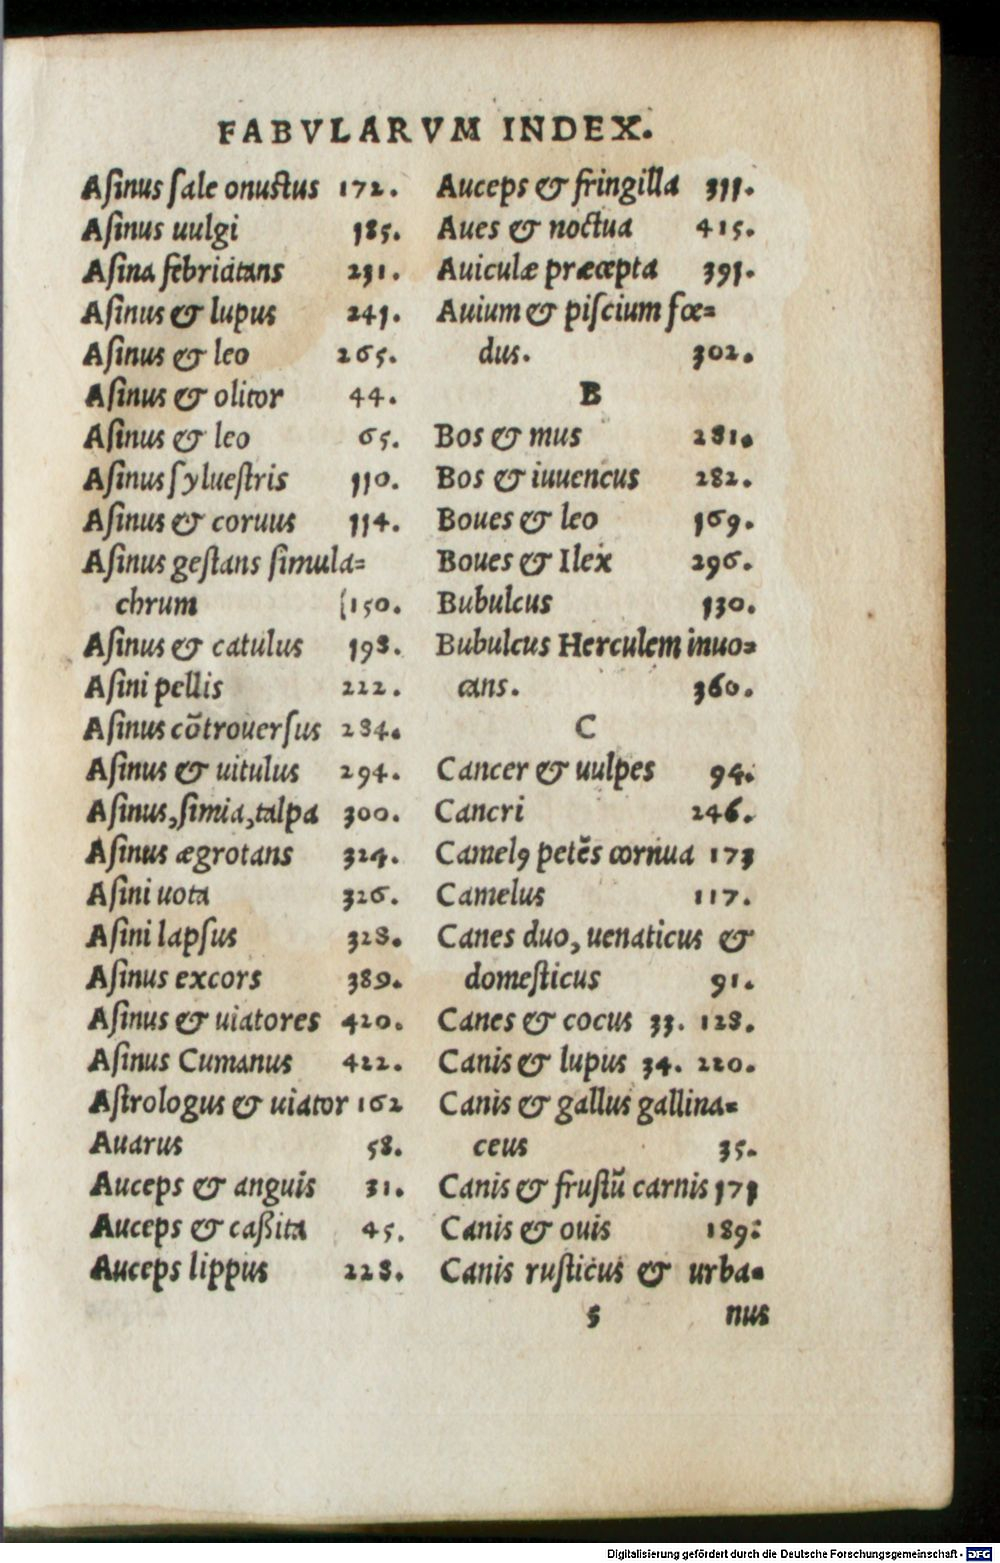 FABVLARVM INDEX.
Aſinus ſale onuſtus 172.
Aſinus uulgi 185.
Aſina febricitans 231.
Aſinus & lupus 241.
Aſinus & leo 265.
Aſinus & olitor 44.
Aſinus & leo 65.
Aſinus ſylueſtris 110.
Aſinus & coruus 114.
Aſinus geſtans ſimula=
chrum (150.
Aſinus & catulus 198.
Aſini pellis 222.
Aſinus cōtrouerſus 284.
Aſinus & uitulus 294.
Aſinus, ſimia, talpa 300.
Aſinus ægrotans 324.
Aſini uota 326.
Aſini lapſus 328.
Aſinus excors 389.
Aſinus & uiatores 420.
Aſinus Cumanus 422.
Aſtrologus & uiator 162
Auarus 58.
Auceps & anguis 31.
Auceps & caßita 45.
Auceps lippus 228.
Auceps & fringilla 311.
Aues & noctua 415.
Auiculæ præcepta 391.
Auium & piſcium fœ=
dus. 302.
B
Bos & mus 281.
Bos & iuuencus 282.
Boues & leo 169.
Boues & Ilex 296.
Bubulcus 130.
Bubulcus Herculem inuo=
cans. 360.
C
Cancer & uulpes 94.
Cancri 246.
Camelꝰ petẽs cornua 173
Camelus 117.
Canes duo, uenaticus &
domeſticus 91.
Canes & cocus 33. 128.
Canis & lupus 34. 220.
Canis & gallus gallina=
ceus 35.
Canis & fruſtũ carnis 171
Canis & ouis 189:
Canis ruſticus & urba=
s nus
Digitalisierung gefördert durch die Deutsche Forschungsgemeinschaft - DFG